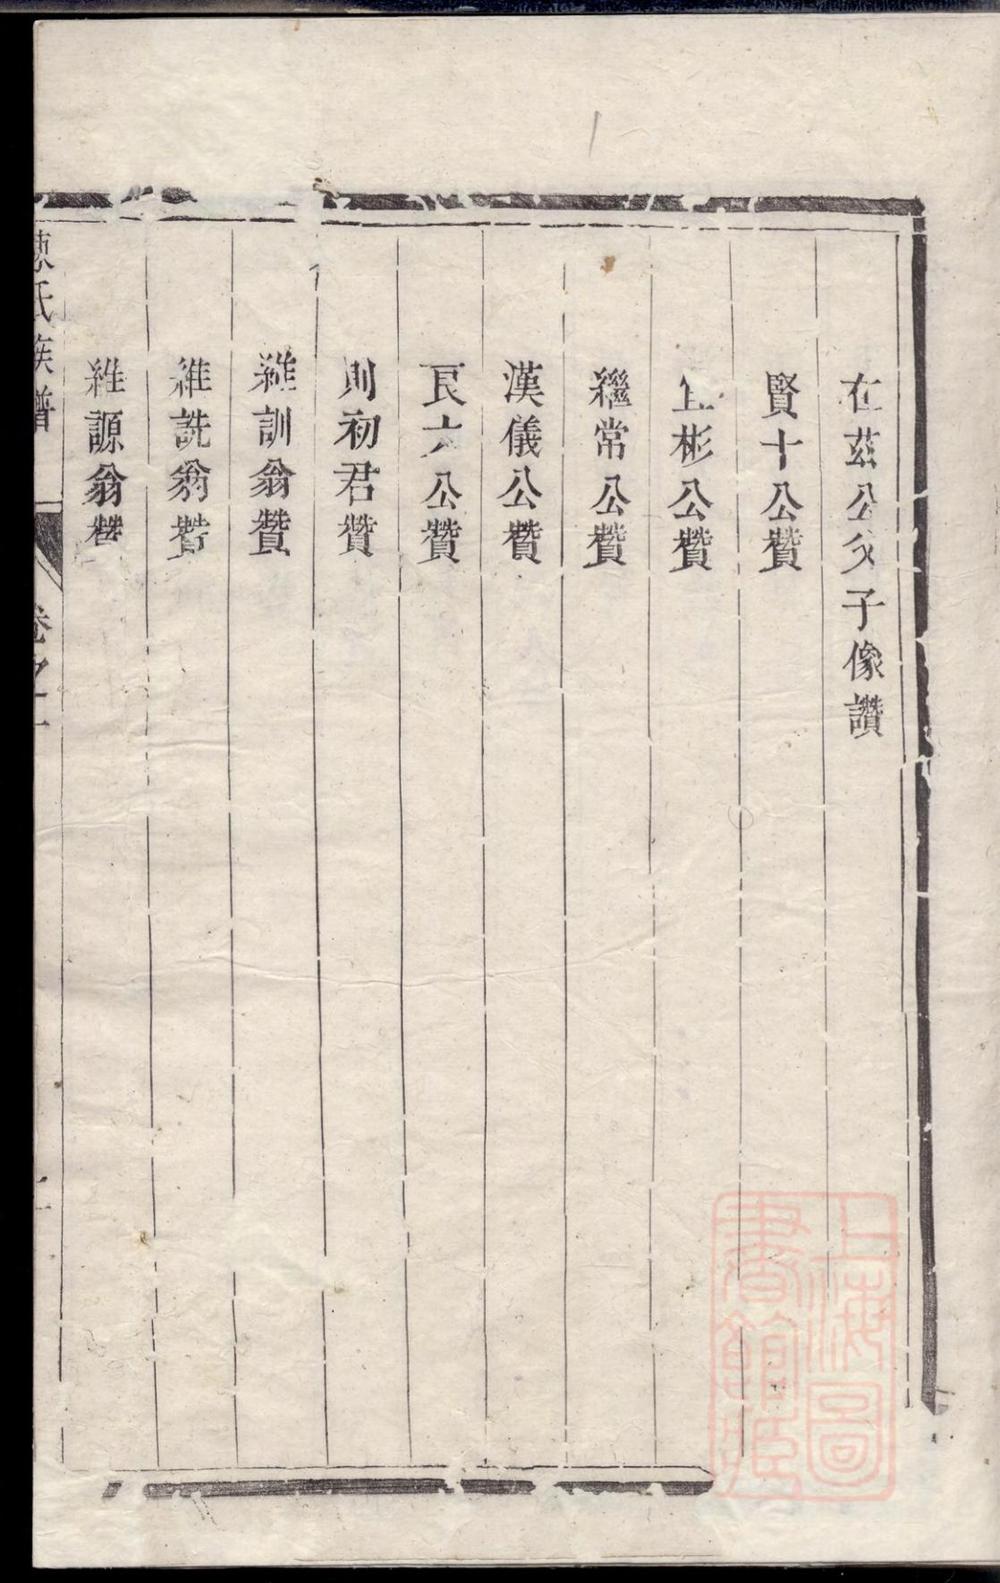 在茲公父子像讚
賢十公贊
彬公贊
繼常公贊
漢儀公贊
良六公贊
則初君贊
維訓翁贊
維詵翁贊
維謜翁贊
氏族譜
卷之二
上海圖書館藏